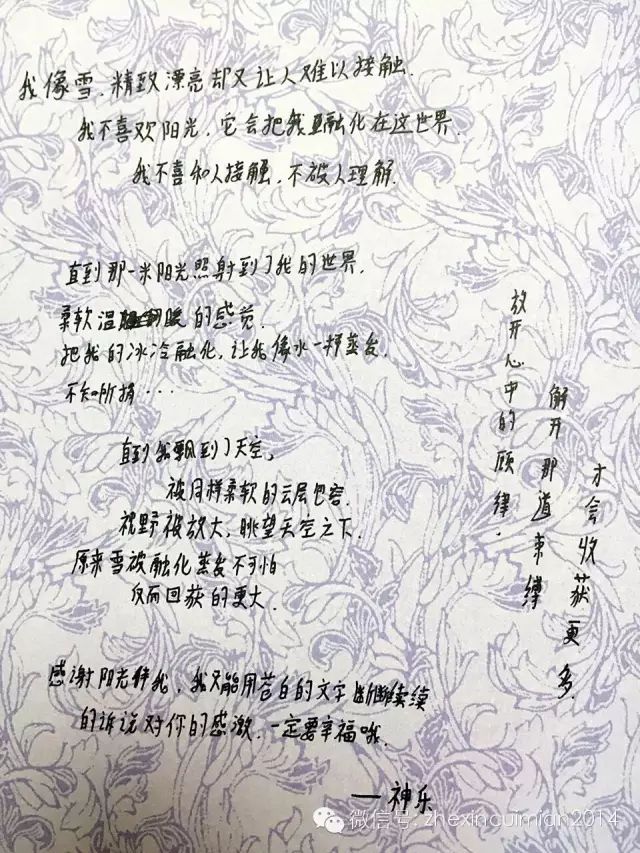 我像雪，精致漂亮却又让人难以接触．
我不喜欢阳光，它会把我融化在这世界．
我不喜和人接触，不被人理解．
直到那一米阳光照射到了我的世界．
柔软温暖的感觉．
把我的冰冷融化，让我像水一样蒸发．
不知所措···
直到我飘到了天空，
被同样柔软的云层包容．
视野被放大，眺望天空之下．
原来雪被融化蒸发不可怕
反而回获的更大．
感谢阳光伴我，我只能用苍白的文字断断续续
的诉说对你的感激．一定要幸福哦．
——神乐
放开心中的顾律．
解开那道束缚
才会收获更多．
微信号: zhexincuimian2014